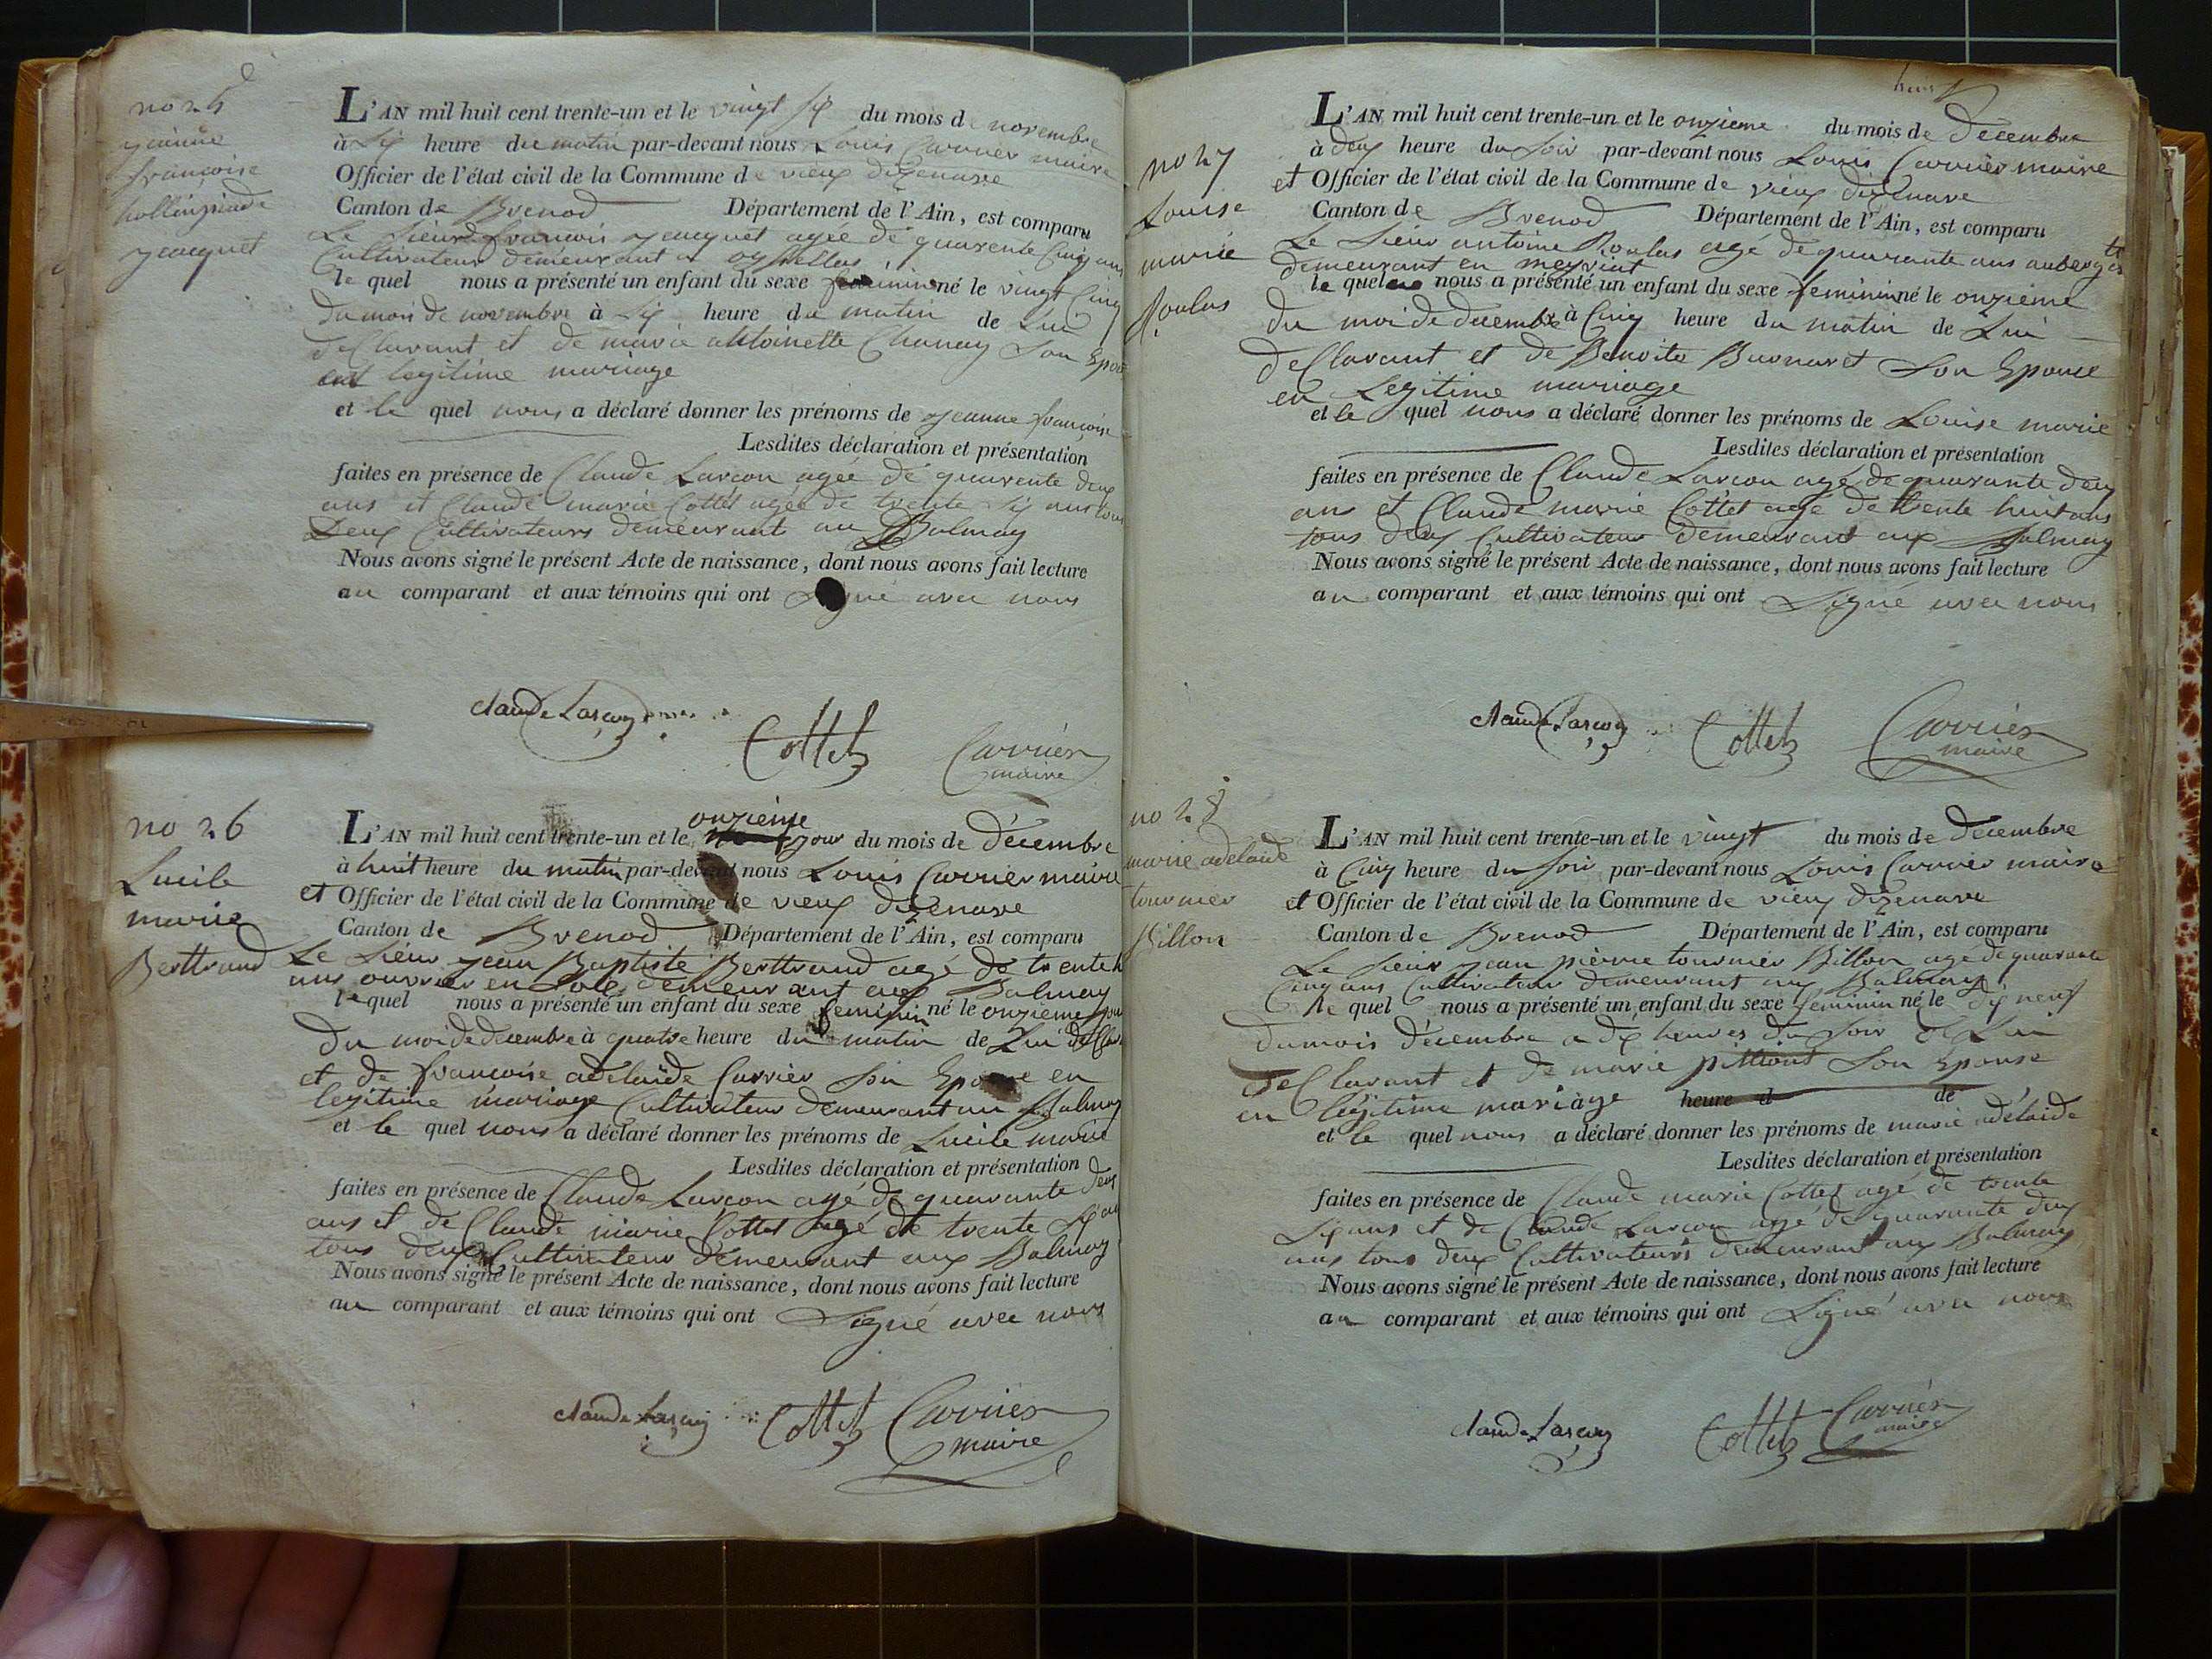 no 25
jeanne
francoise
jacquet
L'AN mil huit cent trente-un et le vingt six du mois de novembre
à six heure du matin par-devant nous Louis Carrier maire
Officier de l'état civil de la Commune de vieux dizenave
Canton de Brenod Département de l'Ain, est comparu
Le Sieur francois jacquet agée de quarente Cinq ans
Cultivateur demeurant a
le quel nous a présenté un enfant du sexe feminin né le vingt Cinq
du mois de novembre à six heure du matin de Lui
deClarant et de marie antoinette Chanay Son Epouse
legitime mariage
et le quel nous a déclaré donner les prénoms de jeanne françoise
Lesdites déclaration et présentation
faites en présence de Claude Larcon agée de quarente deux
ans et Claude marie Cottet agée de trente Six ans tous
Deux Cultivateurs demeurant au Balmay
Nous avons signé le présent Acte de naissance, dont nous avons fait lecture
au comparant et aux témoins qui ont Signé avec nous
claude Larcon
Cottet
Carrier
maire
no 26
Lucile
marie
Berttrand
onzieme
L'AN mil huit cent trente-un et le jour du mois de Décembre
à huit heure du matin par-devant nous Louis Carrier maire
et Officier de l'état civil de la Commune de vieux dizenave
Canton de Brenod Département de l'Ain, est comparu
Le Sieur jean Baptiste Berttrand agé de trente
ans ouvrier en demeurant aux Balmay
le quel nous a présenté un enfant du sexe feminin né le onzieme jour
du moi de decembre à quatre heure du matin de Lui
et de francoise adelaïde Carrier Son Epouse en
legitime mariage Cultivateur demeurant au Balmay
et le quel nous a déclaré donner les prénoms de Lucile marie
Lesdites déclaration et présentation
faites en présence de Claude Larcon agé de quarante deux
ans et de Claude marie Cottet agé de trente Six ans
tous deux Cultivateur demeurant aux Balmay
Nous avons signé le présent Acte de naissance, dont nous avons fait lecture
au comparant et aux témoins qui ont Signé avec nous
claude Larcon
Cottet
Carrier
maire
no 27
Louise
marie
Roulas
L'AN mil huit cent trente-un et le onzieme du mois de Decembre
à deux heure du Soir par-devant nous Louis Carrier maire
et Officier de l'état civil de la Commune de vieux dizenave
Canton de Brenod Département de l'Ain, est comparu
Le Sieur antoine Roulas agé de quarante ans
demeurant en meyriat
le quel nous a présenté un enfant du sexe feminin né le onzieme
du moi de decembre à Cinq heure du matin de Lui
deClarant et de Benoite Son Epouse
en Legitime mariage
et le quel nous a déclaré donner les prénoms de Louise marie
Lesdites déclaration et présentation
faites en présence de Claude Larcon agé de quarante deux
ans et Claude marie Cottet agé de trente huit ans
tous deux Cultivateur demeurant aux Balmay
Nous avons signé le présent Acte de naissance, dont nous avons fait lecture
au comparant et aux témoins qui ont Signé avec nous
claude Larcon
Cottet
Carrier
maire
no 28
marie adelaide
tournier
Billon
L'AN mil huit cent trente-un et le vingt du mois de Decembre
à Cinq heure du Soir par-devant nous Louis Carrier maire
et Officier de l'état civil de la Commune de vieux dizenave
Canton de Brenod Département de l'Ain, est comparu
Le Sieur jean pierre tournier Billon agé de quarante
Cinq ans Cultivateur demeurant aux Balmay
le quel nous a présenté un enfant du sexe feminin né le dix neuf
du mois decembre a dix heures du Soir de Lui
deClarant et de marie Son Epouse
en légitime mariage heure d de
et le quel nous a déclaré donner les prénoms de marie adélaide
Lesdites déclaration et présentation
faites en présence de Claude marie Cottet agé de trente
Six ans et de Claude Larcon agé de quarante deux
ans tous deux Cultivateurs demeurant aux Balmay
Nous avons signé le présent Acte de naissance, dont nous avons fait lecture
au comparant et aux témoins qui ont Signé avec nous
claude Larcon
Cottet
Carrier
maire